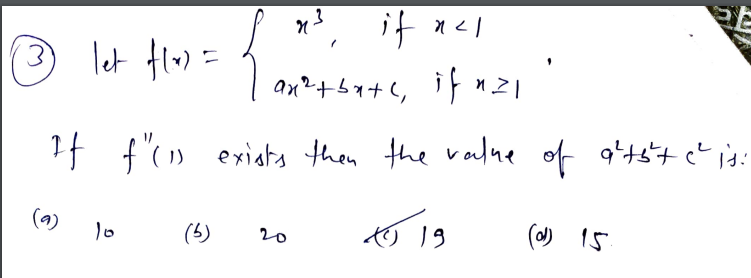 (3) let f(x) = { x³, if x<1
ax²+bx+c, if x≥1 .
If f''(1) exists then the value of a²+b²+c² is:
(a) 10 (b) 20 (c) 19 (d) 15.